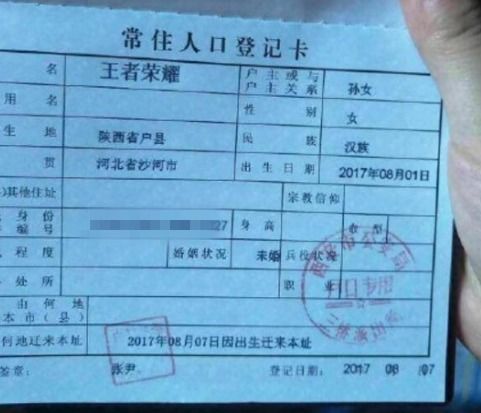 常住人口登记卡
名 王者荣耀 户主或与户主关系 孙女
用名 性别 女
生地 陕西省户县 民族 汉族
贯 河北省沙河市 出生日期 2017年08月01日
其他住址 宗教信仰
身份编号 27 身高 血型
程度 婚姻状况 未婚 兵役状况
处所 职业
由何地
本市(县)
何地迁来本址 2017年08月07日因出生迁来本址
签章: 张尹 登记日期: 2017 08 07
西安市公安局
户口专用